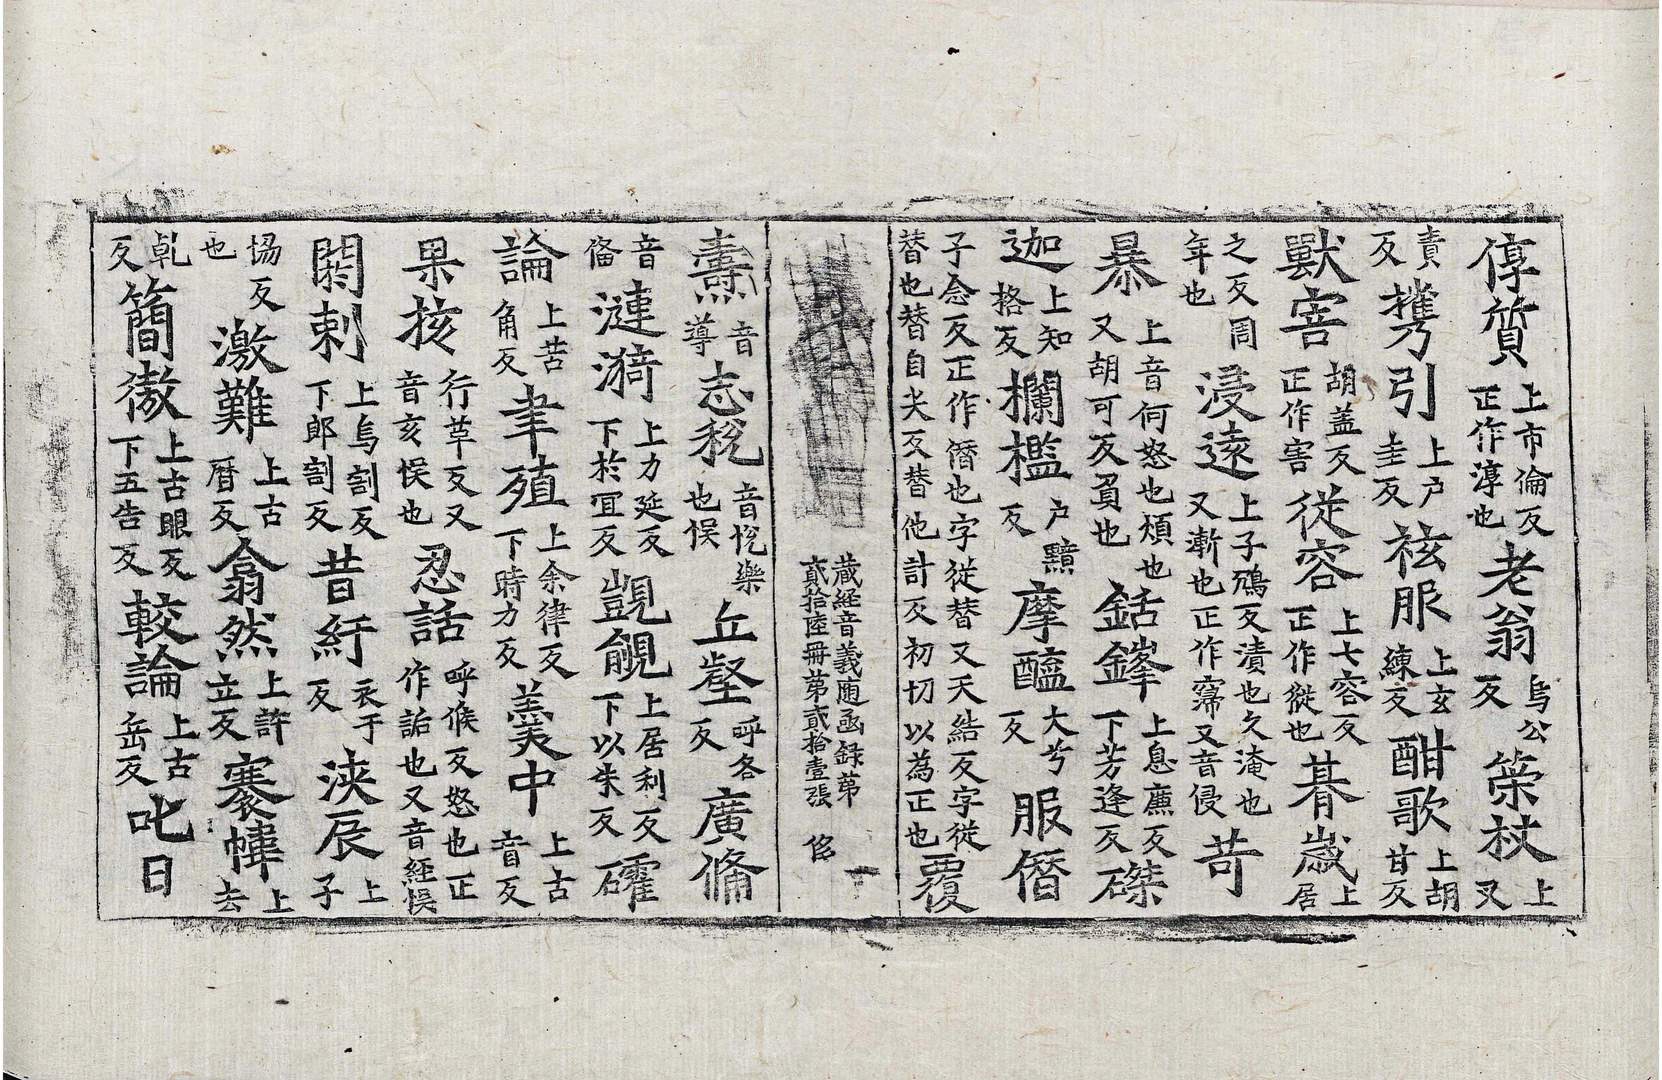 惇質上市倫反正作淳也老翁烏公反䇲杖上叉
責反攜引上户圭反袨服上玄練反酣歌上胡甘反
獸害胡盖反正作害從容上七容反正作從也朞歲上居
之反周年也浸遠上子鴆反漬也久淹也又漸也正作寖又音侵苛
暴上音何怒也煩也又胡可反負也銛鋒上息廉反下芳逢反磔
迦上知格反欄檻户黤反摩醯大兮反服僭
子念反正作僭也字從替又天結反字從替也替自尖反替他計反初切以為正也覆
藏經音義随函録第貳拾陸冊第貳拾壹張
燾音導志稅音悅樂也悮丘壑呼各反廣俻
音俻漣漪上力延反下於冝反覬覦上居利反下以朱反礭
論上苦角反聿殖上余律反下時力反羑中上古音反
果核行革反又音亥悮也忍話呼候反怒也正作詬也又音經悮
閼剌上烏割反下郎割反昔紆衣于反浹辰上子
協反也激難上古曆反翕然上許立反褰幃上去
乹反簡傲上古眼反下五告反較論上古岳反叱日